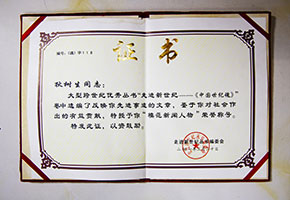 证书
编号:(德)字118
狄树生同志:
大型跨世纪优秀丛书“走进新世纪——《中国世纪魂》”
卷中选编了反映你先进事迹的文章,鉴于你对社会作
出的有益贡献,特授予你“模范新闻人物”荣誉称号。
特发此证,以资鼓励。
走进新世纪丛书编委会